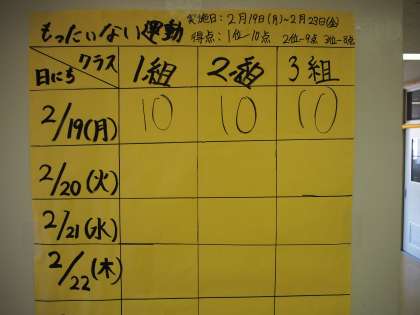 もったいない運動
実施日:2月19日(月)~2月23日(金)
得点:1位-10点 2位-9点 3位-8点
クラス 1組 2組 3組
日にち
2/19(月) 10 10 10
2/20(火)
2/21(水)
2/22(木)